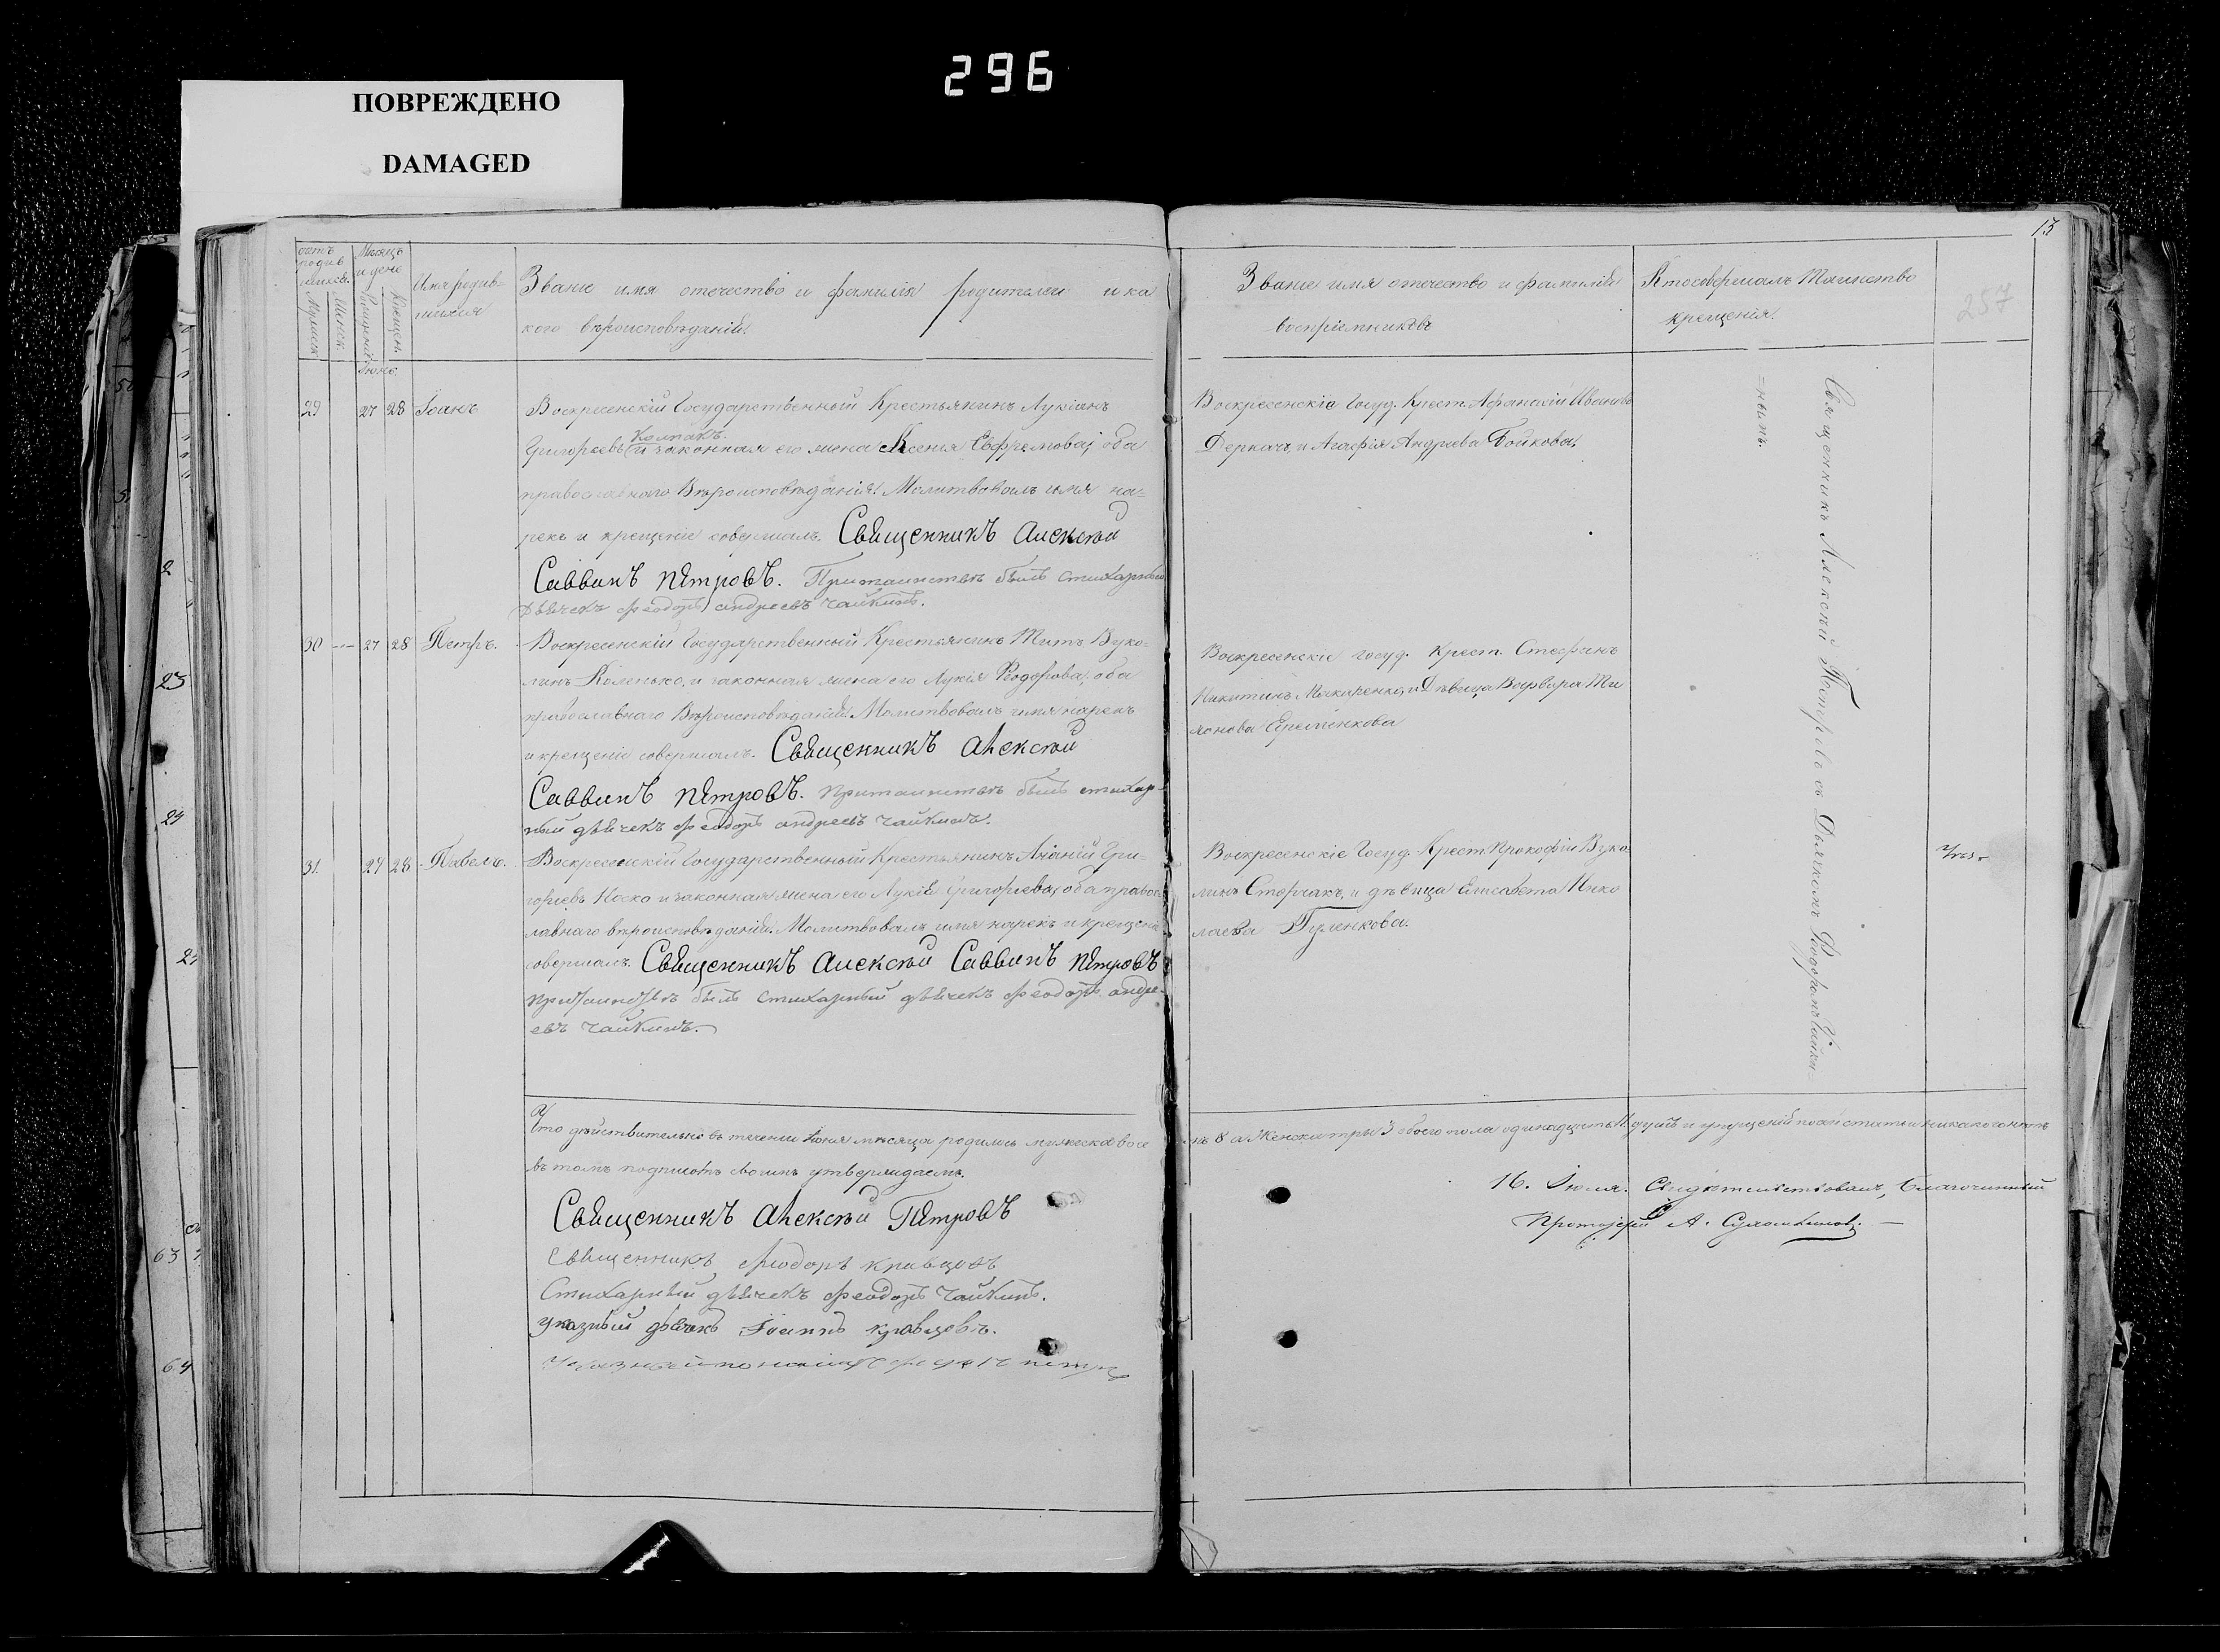 296
ПОВРЕЖДЕНО
DAMAGED
13
257
Мѣсяцъ и день
Имя родив-
шихся
Званіе имя отечество и фамилія родителей и ка
кого вѣроисповѣданія.
Званіе имя отечество и фамилія
воспріемниковъ
Кто совершалъ Таинство
крещенія.
Іюнь.
29 27 28 Іоанъ
Воскресенскій Государственный Крестьянинъ Лукіанъ
Колпакъ
Григорьевъ и законная его жена Ксенія Евфремова, оба
православнаго Вѣроисповѣданія. Молитвовалъ имя на=
рекъ и крещеніе совершалъ. Священникъ Алексѣй
Саввинъ Петровъ. При таинствѣ былъ стихарный
дьячекъ Феодоръ андреевъ Чайкинъ.
Воскресенскіе Госуд. Крест. Афанасій Ивановъ
Деркачъ, и Агафія Андреева Бойкова.
30 27 28 Петръ.
Воскресенскій Государственный Крестьянинъ Титъ Вуко=
линъ Коленько, и законная жена его Лукія Феодорова, оба
православнаго Вѣроисповѣданія. Молитвовалъ имя нарекъ
и крещеніе совершалъ. Священникъ Алексѣй
Саввинъ Петровъ. При таинствѣ былъ стихар-
ный дьячекъ Феодоръ андреевъ Чайкинъ.
Воскресенскіе госуд. Крест. Стефанъ
Никитинъ и Дѣвица Варвара
Еременкова
31. 27 28 Павелъ.
Воскресенскій Государственный Крестьянинъ Ананій Гри-
горьевъ Носко и законная жена его Лукія Григорьева, оба правос
лавнаго вѣроисповѣданія. Молитвовалъ имя нарекъ и крещеніе
совершалъ. Священникъ Алексѣй Саввинъ Петровъ
При таинствѣ былъ стихарный дьячекъ Феодоръ андре-
евъ Чайкинъ.
Воскресенскіе Госуд. Крест. Прокофій Вуко=
линъ и дѣвица Елисавета Нико
лаева Гуленкова.
Священникъ Алексѣй Петровъ съ Дьячкомъ Феодоромъ Чайки
=нымъ.
Что дѣйствительно въ теченіи Іюня мѣсяца родилось мужеска восе
мъ 8 а Женска три 3 обоего пола одинадцать 11 душъ и
въ томъ подписомъ своимъ утверждаемъ.
Священникъ Алексѣй Петровъ
Священникъ Феодоръ Кравцовъ
Стихарный дьячекъ Феодоръ Чайкинъ.
указный дьячекъ Іоаннъ Кравцовъ.
16. Іюля. Свидѣтельствовалъ, Благочинный
Протоіерей А.